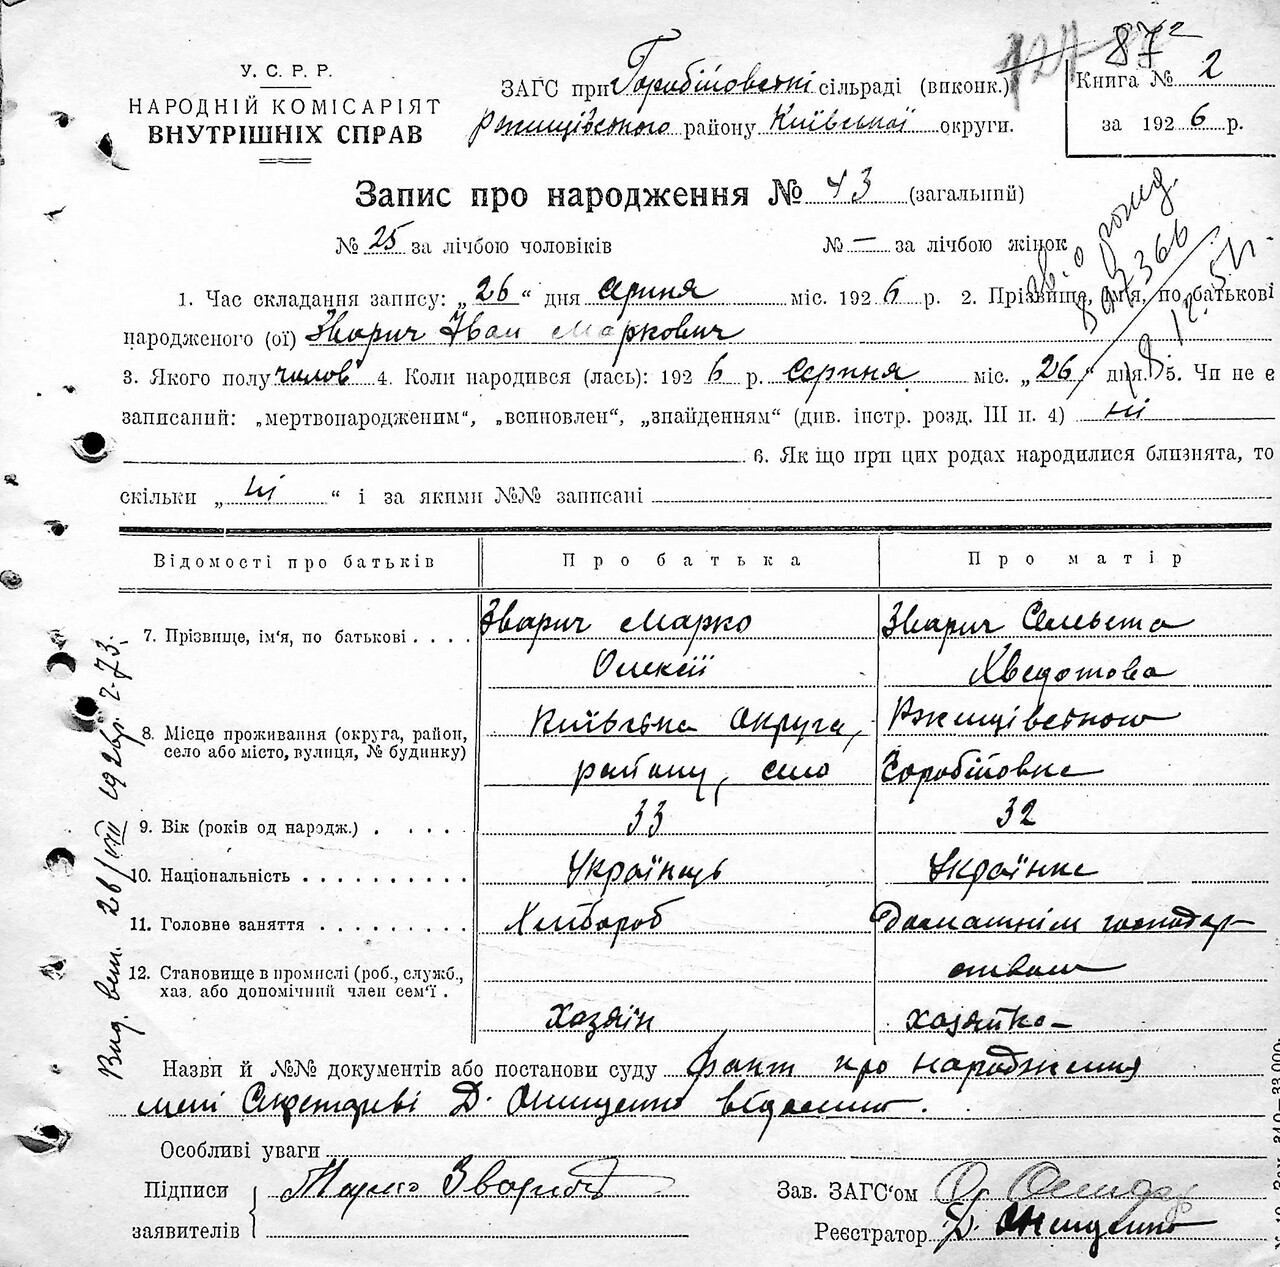 87²
У. С. Р. Р.
НАРОДНІЙ КОМІСАРІЯТ
ВНУТРІШНІХ СПРАВ
ЗАГС при Горобіївській сільраді (виконк.)
Ржищівського району Київської округи.
Книга № 2
за 1926 р.
Запис про народження № 43 (загальний)
№ 25 за лічбою чоловіків № — за лічбою жінок
1. Час складання запису: „26“ дня серпня міс. 1926 р. 2. Прізвище, ім'я, по батькові
народженого (ої) Зварич Іван Маркович
3. Якого полу чолов 4. Коли народився (лась): 1926 р. серпня міс. „26„ дня. 5. Чи не є
записаний: „мертвонародженим“, „всиновлен“, „знайденням“ (див. інстр. розд. III п. 4) ні
6. Як що при цих родах народилися близнята, то
скільки „ ні “ і за якими №№ записані
Відомості про батьків Про батька Про матір
7. Прізвище, ім'я, по батькові . . . . Зварич Марко Зварич
Олексії Хведотова
8. Місце проживання (округа, район, Київська округа, Ржищівського
село або місто, вулиця, № будинку) району, село
9. Вік (років од народж.) . . . . . 33 32
10. Національність . . . . . . . . . . Українець Українка
11. Головне заняття . . . . . . . . . Хлібороб Домашнім господар-
ством
12. Становище в промислі (роб., служб.,
хаз. або допомічний член сем'ї . Хазяїн хазяйка
Назви й №№ документів або постанови суду факт про народження
мені Секретареві Д. Онищенко відомий.
Особливі уваги
Підписи Марко Зварич Зав. ЗАГС'ом
заявителів Реєстратор Д. Онищенко